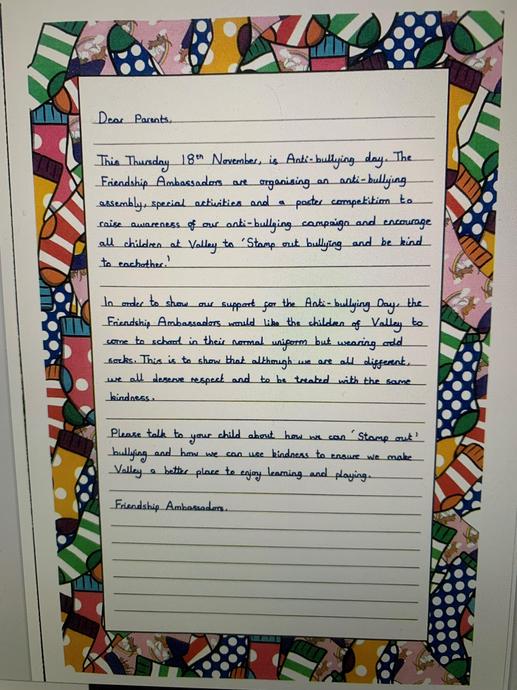 Dear Parents,
This Thursday 18th November, is Anti-bullying day. The
Friendship Ambassadors are organising an anti-bullying
assembly, special activities and a poster competition to
raise awareness of our anti-bullying campaign and encourage
all children at Valley to 'Stamp out bullying and be kind
to eachother.'
In order to show our support for the Anti-bullying Day, the
Friendship Ambassadors would like the children of Valley to
come to school in their normal uniform but wearing odd
socks. This is to show that although we are all different,
we all deserve respect and to be treated with the same
kindness.
Please talk to your child about how we can 'Stamp out'
bullying and how we can use kindness to ensure we make
Valley a better place to enjoy learning and playing.
Friendship Ambassadors.